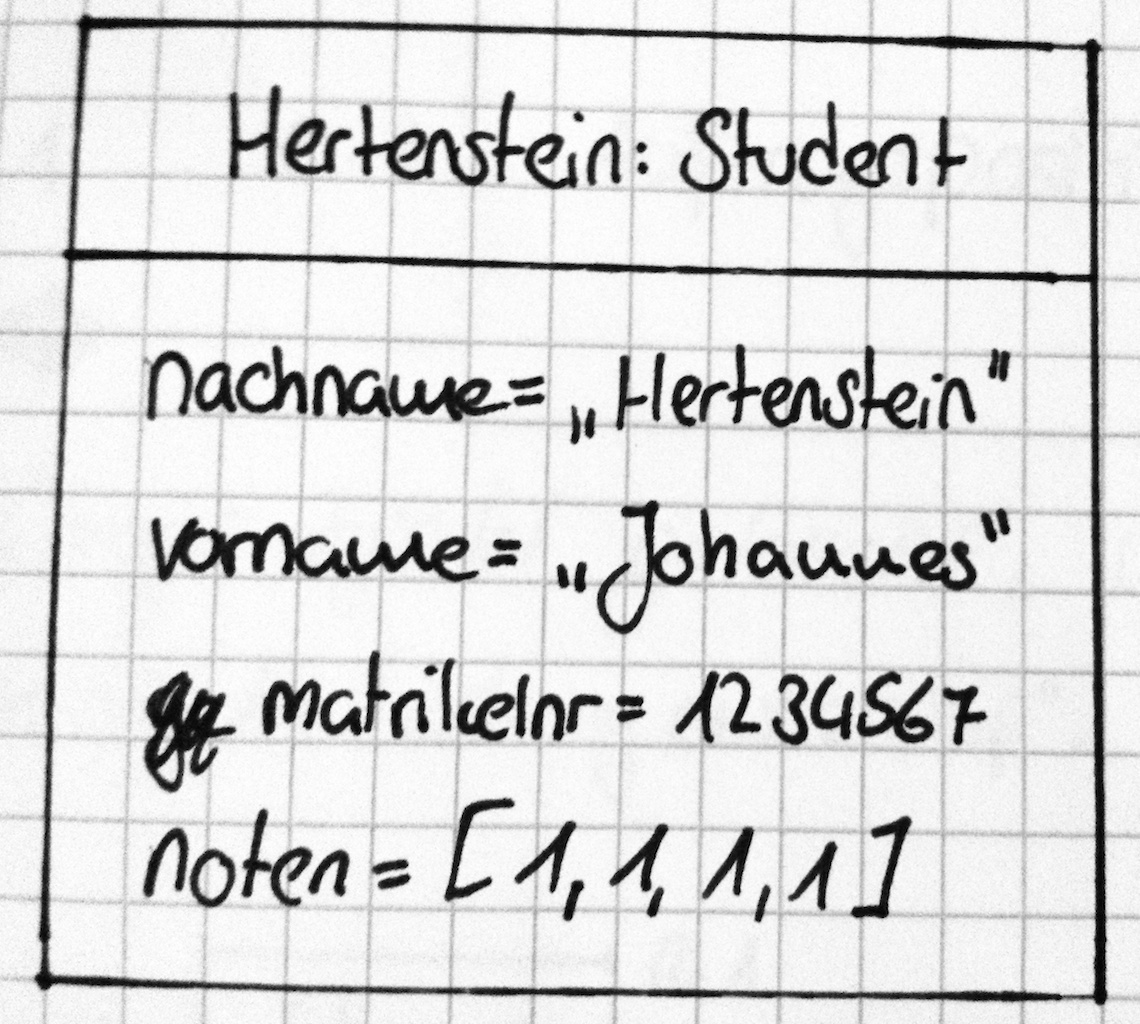 Hertenstein: Student
nachname= „Hertenstein"
vorname= „Johannes"
matrikelnr= 1234567
noten= [1, 1, 1, 1]